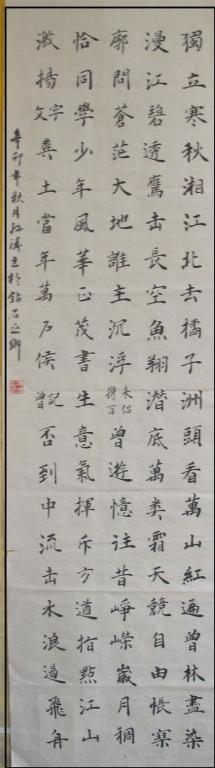 獨立寒秋湘江北去橘子洲頭看萬山紅遍曾林盡染
漫江碧透鷹击長空魚翔潜底萬类霜天競自由悵寥
廓問蒼茫大地誰主沉浮携来百侣曾遊憶往昔崢嶸嵗月稠
恰同學少年風華正茂書生意氣揮斥方遒指點江山
激揚文字粪土當年萬户侯曾記否到中流击水浪遏飛舟
辛卯年秋月